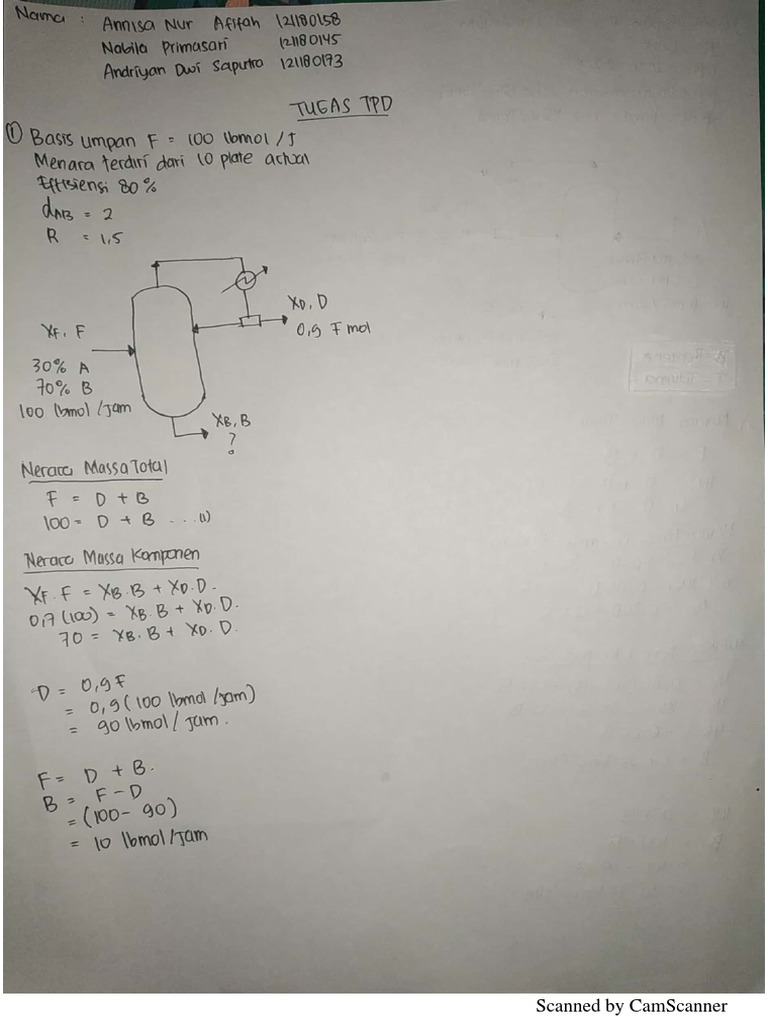 Nama : Annisa Nur Afifah 121180158
Nabila Primasari 121180145
Andriyan Dwi Saputro 121180173
TUGAS TPD
① Basis umpan F = 100 lbmol / J
Menara terdiri dari 10 plate actual
Effisiensi 80 %
dAB = 2
R = 1,5
XD, D
0,9 F mol
XF, F
30% A
70% B
100 lbmol /jam
XB, B
?
Neraca Massa Total
F = D + B
100 = D + B ... (1)
Neraca Massa Komponen
XF. F = XB. B + XD. D.
0,7 (100) = XB. B + XD. D.
70 = XB. B + XD. D.
D = 0,9 F
= 0,9 (100 lbmol /jam)
= 90 lbmol / jam.
F = D + B.
B = F - D
= (100 - 90)
= 10 lbmol /jam
Scanned by CamScanner